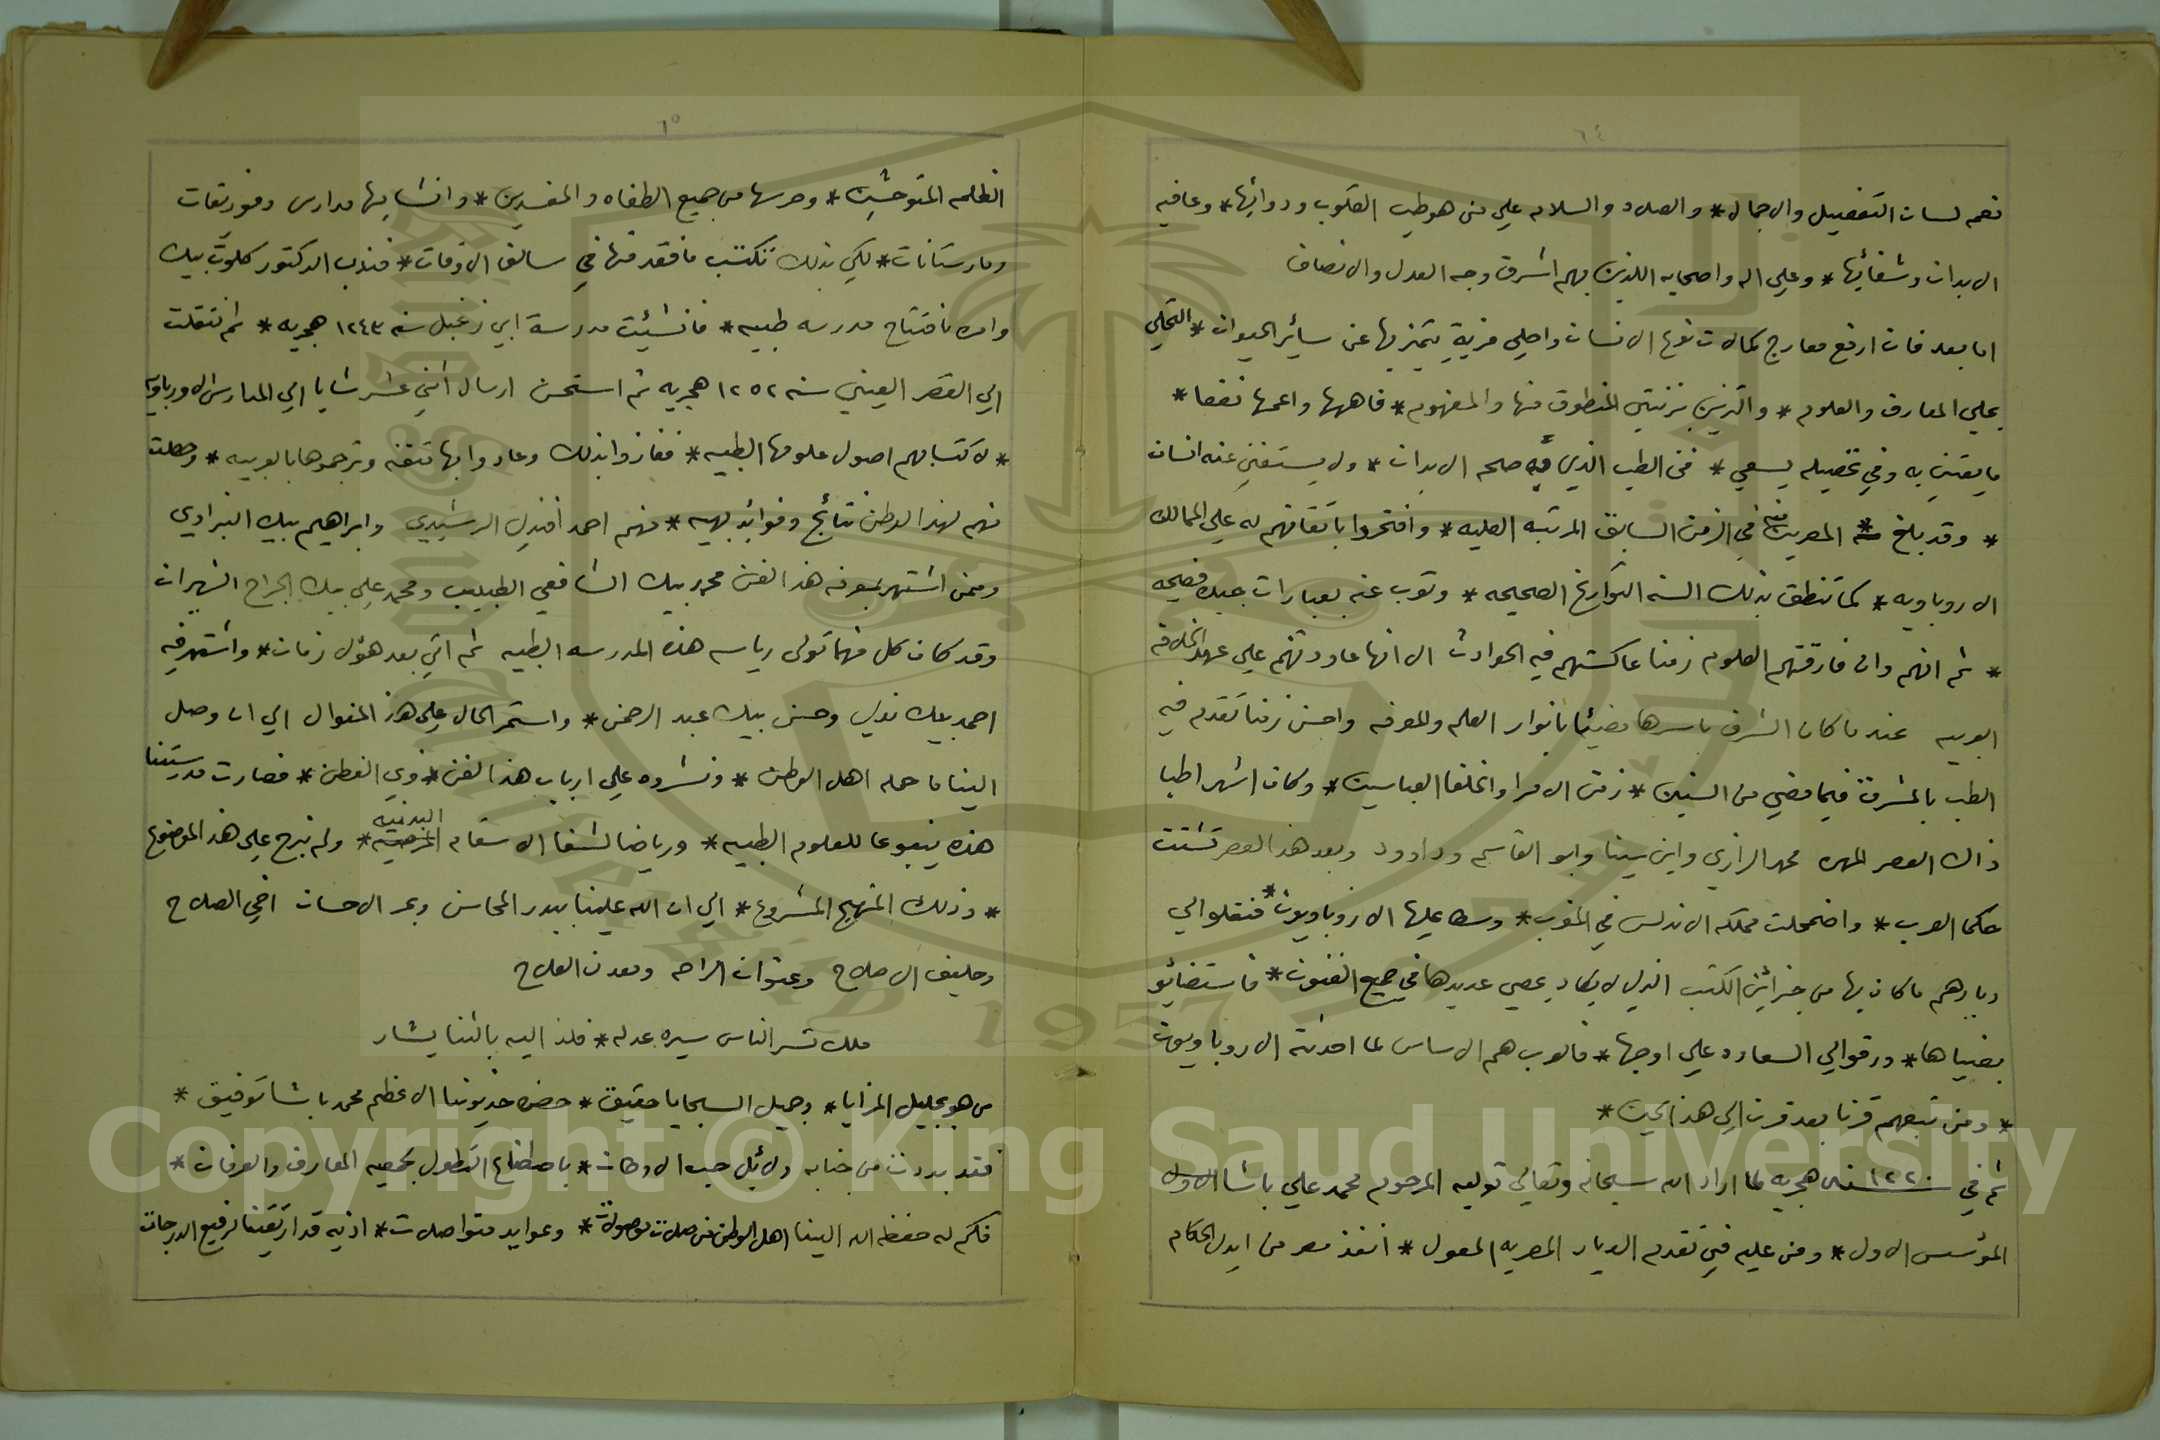 ٦٤
نعمه لسان التفصيل والاجمال * والصلاه والسلام علي من هو طب القلوب ودوائها * وعافيه
الابدان وشفائها * وعلي اله واصحابه اللذين بهم اشرق وجه العدل والانصاف
اما بعد فان ارفع معارج كمالات نوع الانسان واحلي مزية يتميز بها عن سائر الحيوان * التحلي
بحلي المعارف والعلوم * والتزين بزينتي المنطوق منها والمفهوم * فاهمها واعمها نفعا *
ما يعتني به وفي تحصيله يسعي * فن الطب الذي به صحه الابدان * ولا يستغني عنه انسان
* وقد بلغ المصريين فيه في الزمن السابق المرتبه العليه * وافتخروا باتقانهم له علي الممالك
الاروباويه * كما تنطق بذلك السنه التواريخ الصحيحه * وتعرب عنه بعبارات جيده فصيحه
* ثم انهم وان فارقتهم العلوم زمنا عاكستهم فيه الحوادث الا انها عاودتهم علي عهد الخلافه
العربيه عندما كان الشرق باسرها مضيئا بانوار العلم والمعرفه واحسن زمنا تقدم فيه
الطب بالمشرق فيما مضي من السنين * زمن الامرا والخلفا العباسيين * وكان اشهر اطبا
ذاك العصر المهره محمد الرازي وابن سينا وابو القاسم وداوود وبعد هذا العصر تشتت
حكما العرب * واضمحلت مملكه الاندلس في المغرب * وسطا عليها الاروباويون * فنقلوا الي
ديارهم ما كان بها من خزائن الكتب الذي لا يكاد يحصي عديدها في جميع الفنون * فاستضائو
بضياها * ورقوا الي السعاده علي اوجها * فالعرب هم الاساس لما احدثه الاروباويون
* ومن تبعهم قرنا بعد قرن الي هذا الحين *
ثم في سنه ١٢٢٠ هجريه لما اراد الله سبحانه وتعالي توليه المرحوم محمد علي باشا الاول
المؤسس الاول * ومن عليه في تقدم الديار المصريه المعول * انقذ مصر من ايدي الحكام
٦٥
الظلمه المتوحشين * وحرسها من جميع الطغاه والمفسدين * وانشا بها مدارس وفوريقات
ومارستانات * لكي بذلك تكتسب ما فقد منها في سالف الاوقات * فندب الدكتور كلوت بيك
وامره بافتتاح مدرسه طبيه * فانشئت مدرسة ابي زعبل سنه ١٢٤٣ هجريه * ثم انتقلت
الي القصر العيني سنه ١٢٥٢ هجريه ثم استحسن ارسال اثني عشر شابا الي المدارس الاورباويه
* لاكتسابهم اصول علومها الطبيه * ففازوا بذلك وعادوا بها متقنه وترجموها بالعربيه * وحصلت
منهم لهذا الوطن نتائج وفوائد بهيه * منهم احمد افندي الرشيدي وابراهيم بيك النبراوي
وممن اشتهر بمعرفه هذا الفن محمد بيك الشافعي الطبيب ومحمد علي بيك الجراح الشهيران
وقد كان كل منهما تولي رياسه هذه المدرسه الطبيه ثم اتي بعد هؤلا زمان * واشتهر فيه
احمد بيك ندي وحسن بيك عبد الرحمن * واستمر الحال علي هذا المنوال الي ان وصل
الينا ما حمله اهل الوطن * ونشروه علي ارباب هذا الفن * ذوي الفطن * فصارت مدرستنا
هذه ينبوعا للعلوم الطبيه * ورياضا لشفا الاسقام البدنيه * ولم تبرح علي هذا الموضوع
* وذلك المنهج المشروع * الي ان من الله علينا ببدر المحاسن وبحر الاحسان اخي الصلاح
وحليف الاصلاح وعنوان الراحه ومعدن الفلاح
ملك تسر الناس سيره عدله * فلذا اليه بالثنا يشار
من هو بجليل المزايا * وجميل السجايا حقيق * حضره خديوينا الاعظم محمد باشا توفيق *
فقد بدت من جنابه دلائل حب الاوطان * باصطناع التطول بجمعيه المعارف والعرفان *
فكم له حفظه الله الينا اهل الوطن من صلات موصولات * وعوايد متواصلات * اذ به قد ارتقينا رفيع الدرجات
Copyright © King Saud University
1957